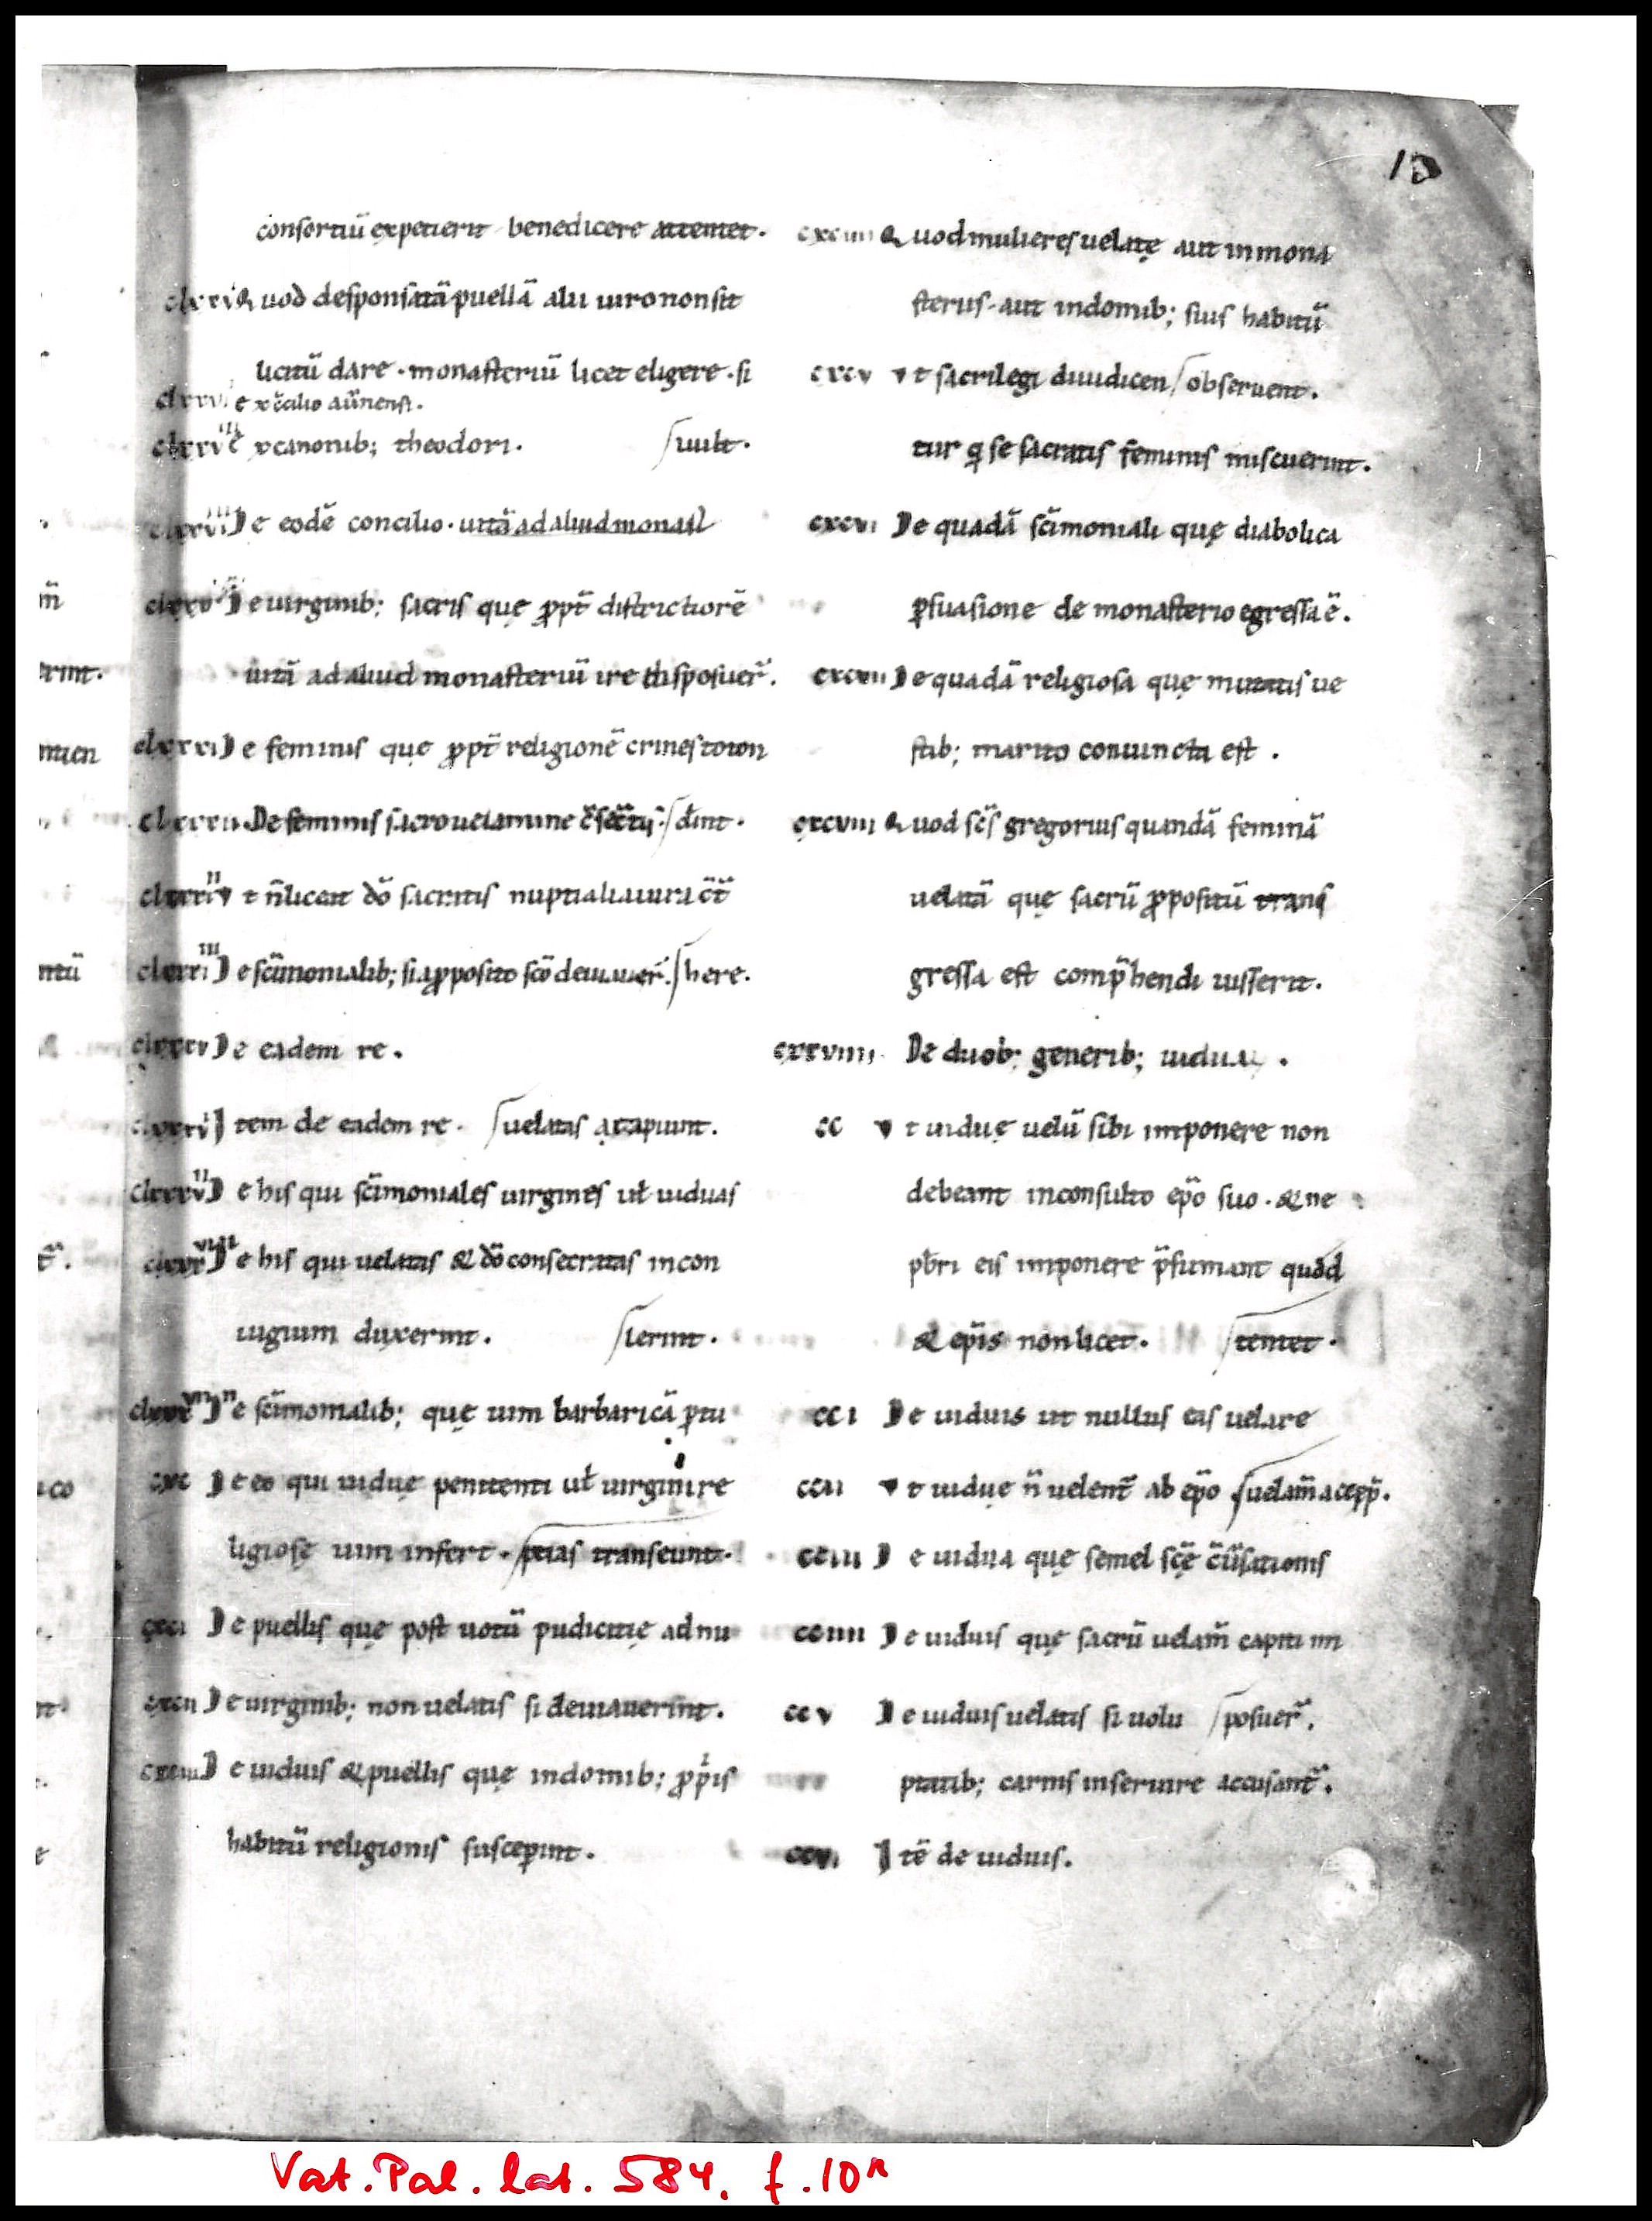 10
consortiū expetierit benedicere attentet.
Quod desponsatā puellā alii uiro non sit
licitū dare. monasteriū licet eligere. si
Ex c̄cilio aūrienst.
Ex canonib; theodori. uult.
De eodē concilio. uitā ad aliud monast
De uirginib; sacris quę ꝓpt̄ districtiorē
uitā ad aliud monasteriū ire disposuer̄.
clxxxi De feminis quę ꝓpt̄ religionē crines toton
clxxxii. De feminis sacro uelamine c̄sec̄tis. dint.
Vt n̄ liceat dō sacratis nuptialia iura c̄t̄
De sc̄imonialib; si a ꝓposito sc̄o deuiauer̄. here.
clxxxv De eadem re.
Item de eadem re. uelatas accipiunt.
De his qui sc̄imoniales uirgines uł uiduas
De his qui uelatas & dō consecratas in con
iugium duxerint. lerint.
De sc̄imonialib; quę uim barbaricā ꝑtu
cxc De eo qui uiduę penitenti uł uirgini re
ligiosę uim infert. ptias transeunt.
cxci De puellis quę post uotū pudicitię ad nu
cxcii De uirginib; non uelatis si deuiauerint.
cxciii De uiduis & puellis quę in domib; ꝓpͥis
habitū religionis susceꝑint.
cxciiii Quod mulieres uelatę aut in mona
steriis. aut in domib; suis habitū
cxcv Vt sacrilegi diiudicen obseruent.
tur q̨ se sacratis feminis miscuerint.
cxcvi De quadā sc̄imoniali quę diabolica
ꝑsuasione de monasterio egressa ē.
cxcvii De quadā religiosa quę mutatis ue
stib; marito coniuncta est.
cxcviii Quod sc̄s gregorius quandā feminā
uelatā quę sacrū ꝓpositū trans
gressa est comp̄hendi iusserit.
cxxviiii. De duob; generib; uiduaꝝ.
cc Vt uiduę uelū sibi imponere non
debeant inconsulto ep̄o suo. & ne
pb̄ri eis imponere p̄sumant quod
& ep̄is non licet. temtet.
cci De uiduis ut nullus eas uelare
ccii Vt uiduę n̄ uelent̄ ab ep̄o uelam̄ accep̄.
cciii De uidua quę semel sc̄ę c̄ūsationis
cciiii De uiduis quę sacrū uelam̄ capiti im
ccv De uiduis uelatis si uolu posuer̄.
ptatib; carnis inseruire accusant̄.
ccvi Itē de uiduis.
Vat. Pal. lat. 584. f. 10r